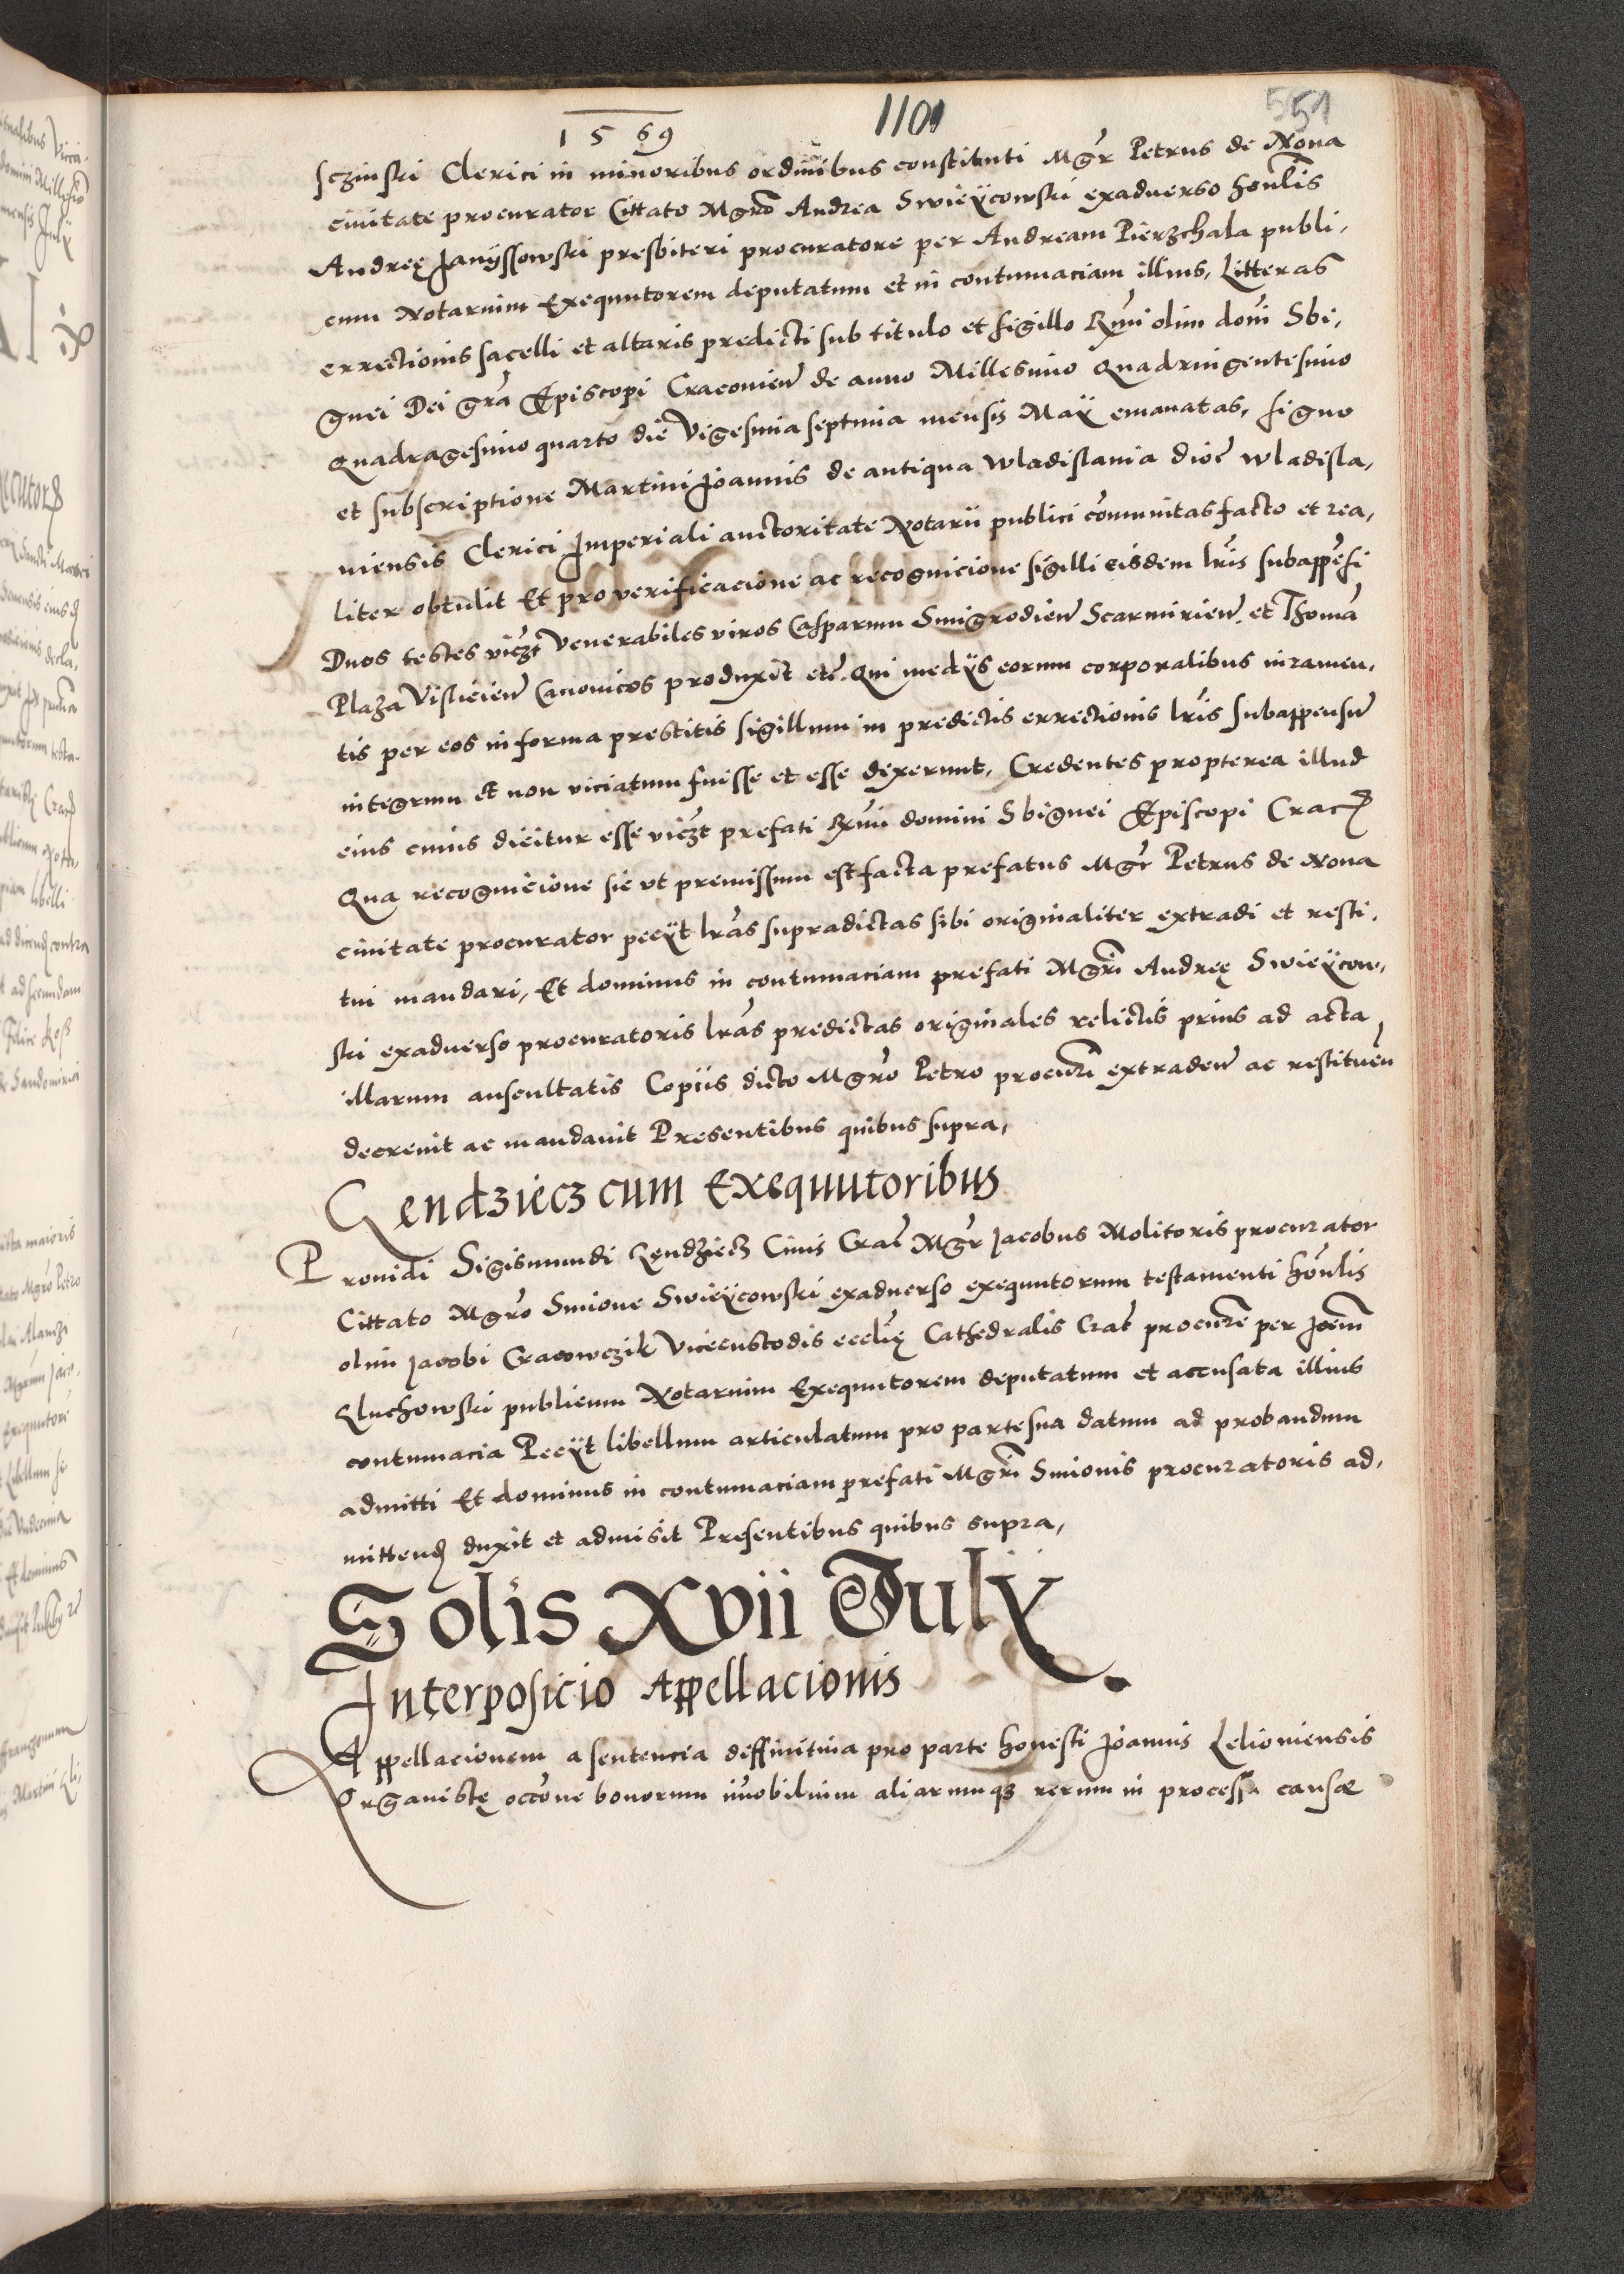 1569
1101
551
sczinski Clerici in minoribus ordinibus constituti Mgr Petrus de Nova
civitate procurator Cittato Mgro Andrea Swieӱcowski exadverso honlis
Andreę Janӱssowski presbiteri procuratore per Andream Pierzchala publi,
cum Notarium Exequutorem deputatum et in contumaciam illius, Litteras
errectionis sacelli et altaris predicti sub titulo et sigillo Rmi olim doni Sbi,
gnei Dei gra Episcopi Cracovien de anno Millesimo Quadringentesimo
Quadragesimo quarto die Vigesima septima mensis Maӱ emanatas, signo
et subscriptione Martini Joannis de antiqua Wladislavia dioc Wladisla,
viensis Clerici Imperiali auctoritate Notarii publici comunitas facto et rea,
liter obtulit Et pro verificacione ac recognicione sigilli eisdem lris subappesi
Duos testes viczt Venerabiles viros Casparum Smigrodien Scarmirien. et Thoma
Plaza Vislicien Canonicos produxit etc. Qui medӱs eorum corporalibus iuramen,
tis per eos in forma prestitis sigillum in predictis errectionis lris subappensu
integrum et non viciatum fuisse et esse dixerunt, Credentes propterea illud
eius cuius dicitur esse viczt prefati Rmi domini Sbignei Episcopi Crac
Qua recognicione sic ut premissum est facta prefatus Mgr Petrus de Nova
civitate procurator peciӱt lras supradictas sibi originaliter extradi et resti,
tui mandari, Et dominus in contumaciam prefati Mgri Andreę Swieӱcow,
ski exadverso procuratoris lras predictas originales relictis prius ad acta
illarum auscultatis Copiis dicto Mgro Petro procuri extraden ac restituen
decrevit ac mandavit Presentibus quibus supra,
Lendziecz cum Exequutoribus
Providi Sigismundi Lendziecz Civis Crac Mgr Jacobus Molitoris procurator
Cittato Mgro Simone Swieӱcowski exadverso exequutorum testamenti honlis
olim Jacobi Cracowczik Vicecustodis ecclię Cathedralis Crac procure per Joem
Gluchowski publicum Notarium Exequutorem deputatum et accusata illius
contumacia Peciӱt libellum articulatum pro parte sua datum ad probandum
admitti Et dominus in contumaciam prefati Mgri Simonis procuratoris ad,
mittend duxit et admisit Presentibus quibus supra,
Solis XVII Julӱ
Interposicio Appellacionis
Appellacionem a sentencia diffinitiva pro parte honesti Joannis Leloviensis
Organistę occone bonorum imobilium aliarumqz rerum in processu causae